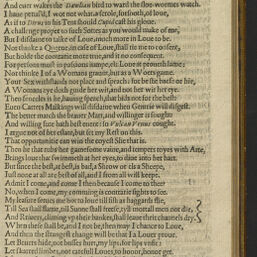 And cuer wakes the Danske bird to ward the sloe-wormes watch.
I haue prou'd, I wot not what, a scrole, forsooth, of loue,
As if to Dorus in his Tent should Cupid cast his gloue.
A challenge proper to such Sottes as you would make of me,
But I disdaine to talke of Loue, much more in Loue to be.
Not thinke a Queene in case of Loue, shall tie me to consent,
But holde the coattaine more true, and it no consequent.
For persons must in passions iumpe, els Loue it proueth lame:
Not thinke I of a Womans graunt, but as a Wooers game.
Your Sex withstands not place and speach: for be she base or hie,
A Womans eye doth guide her wit, and not her wit her eye.
Then speedes in he, hauing speach, that bids not for the best:
Euen Carters Maskings will disdaine when Gentrie will disgest.
The better much the brauer Mart, and willinger is sought:
And willing sute hath best successe: so Vulcan Venus caught.
I argue not of her estate, but set my Rest on this.
That oportunitie can win the coyest She that is.
Then he that rubs her gamesome vaine, and tempers toyes with Arte,
Brings loue that swimmeth at her eyes, to diue into her hart.
But since the best, at best, is bad, a Shrow or els a Sheepe,
Iust none at all are best of all, and I from all will keepe.
Admit I come, and come I then because I come to thee?
No, when I come, my comming is contrarie sights to see.
My leasure serues me not to loue till fish as haggards flie,
Till Sea shall flame, till Sunne shall freese, till mortall men not die,
And Riuers, climing vp their bankes, shall leaue their channels dry.
When these shall be, and I not be, then may I chance to Loue,
And then the strangest change will be that I a Louer proue.
Let Beares bide, not busses hurt, my lips, for lips vnfit:
Let skarred limbes, not carefull Loues, to honor, honor get.